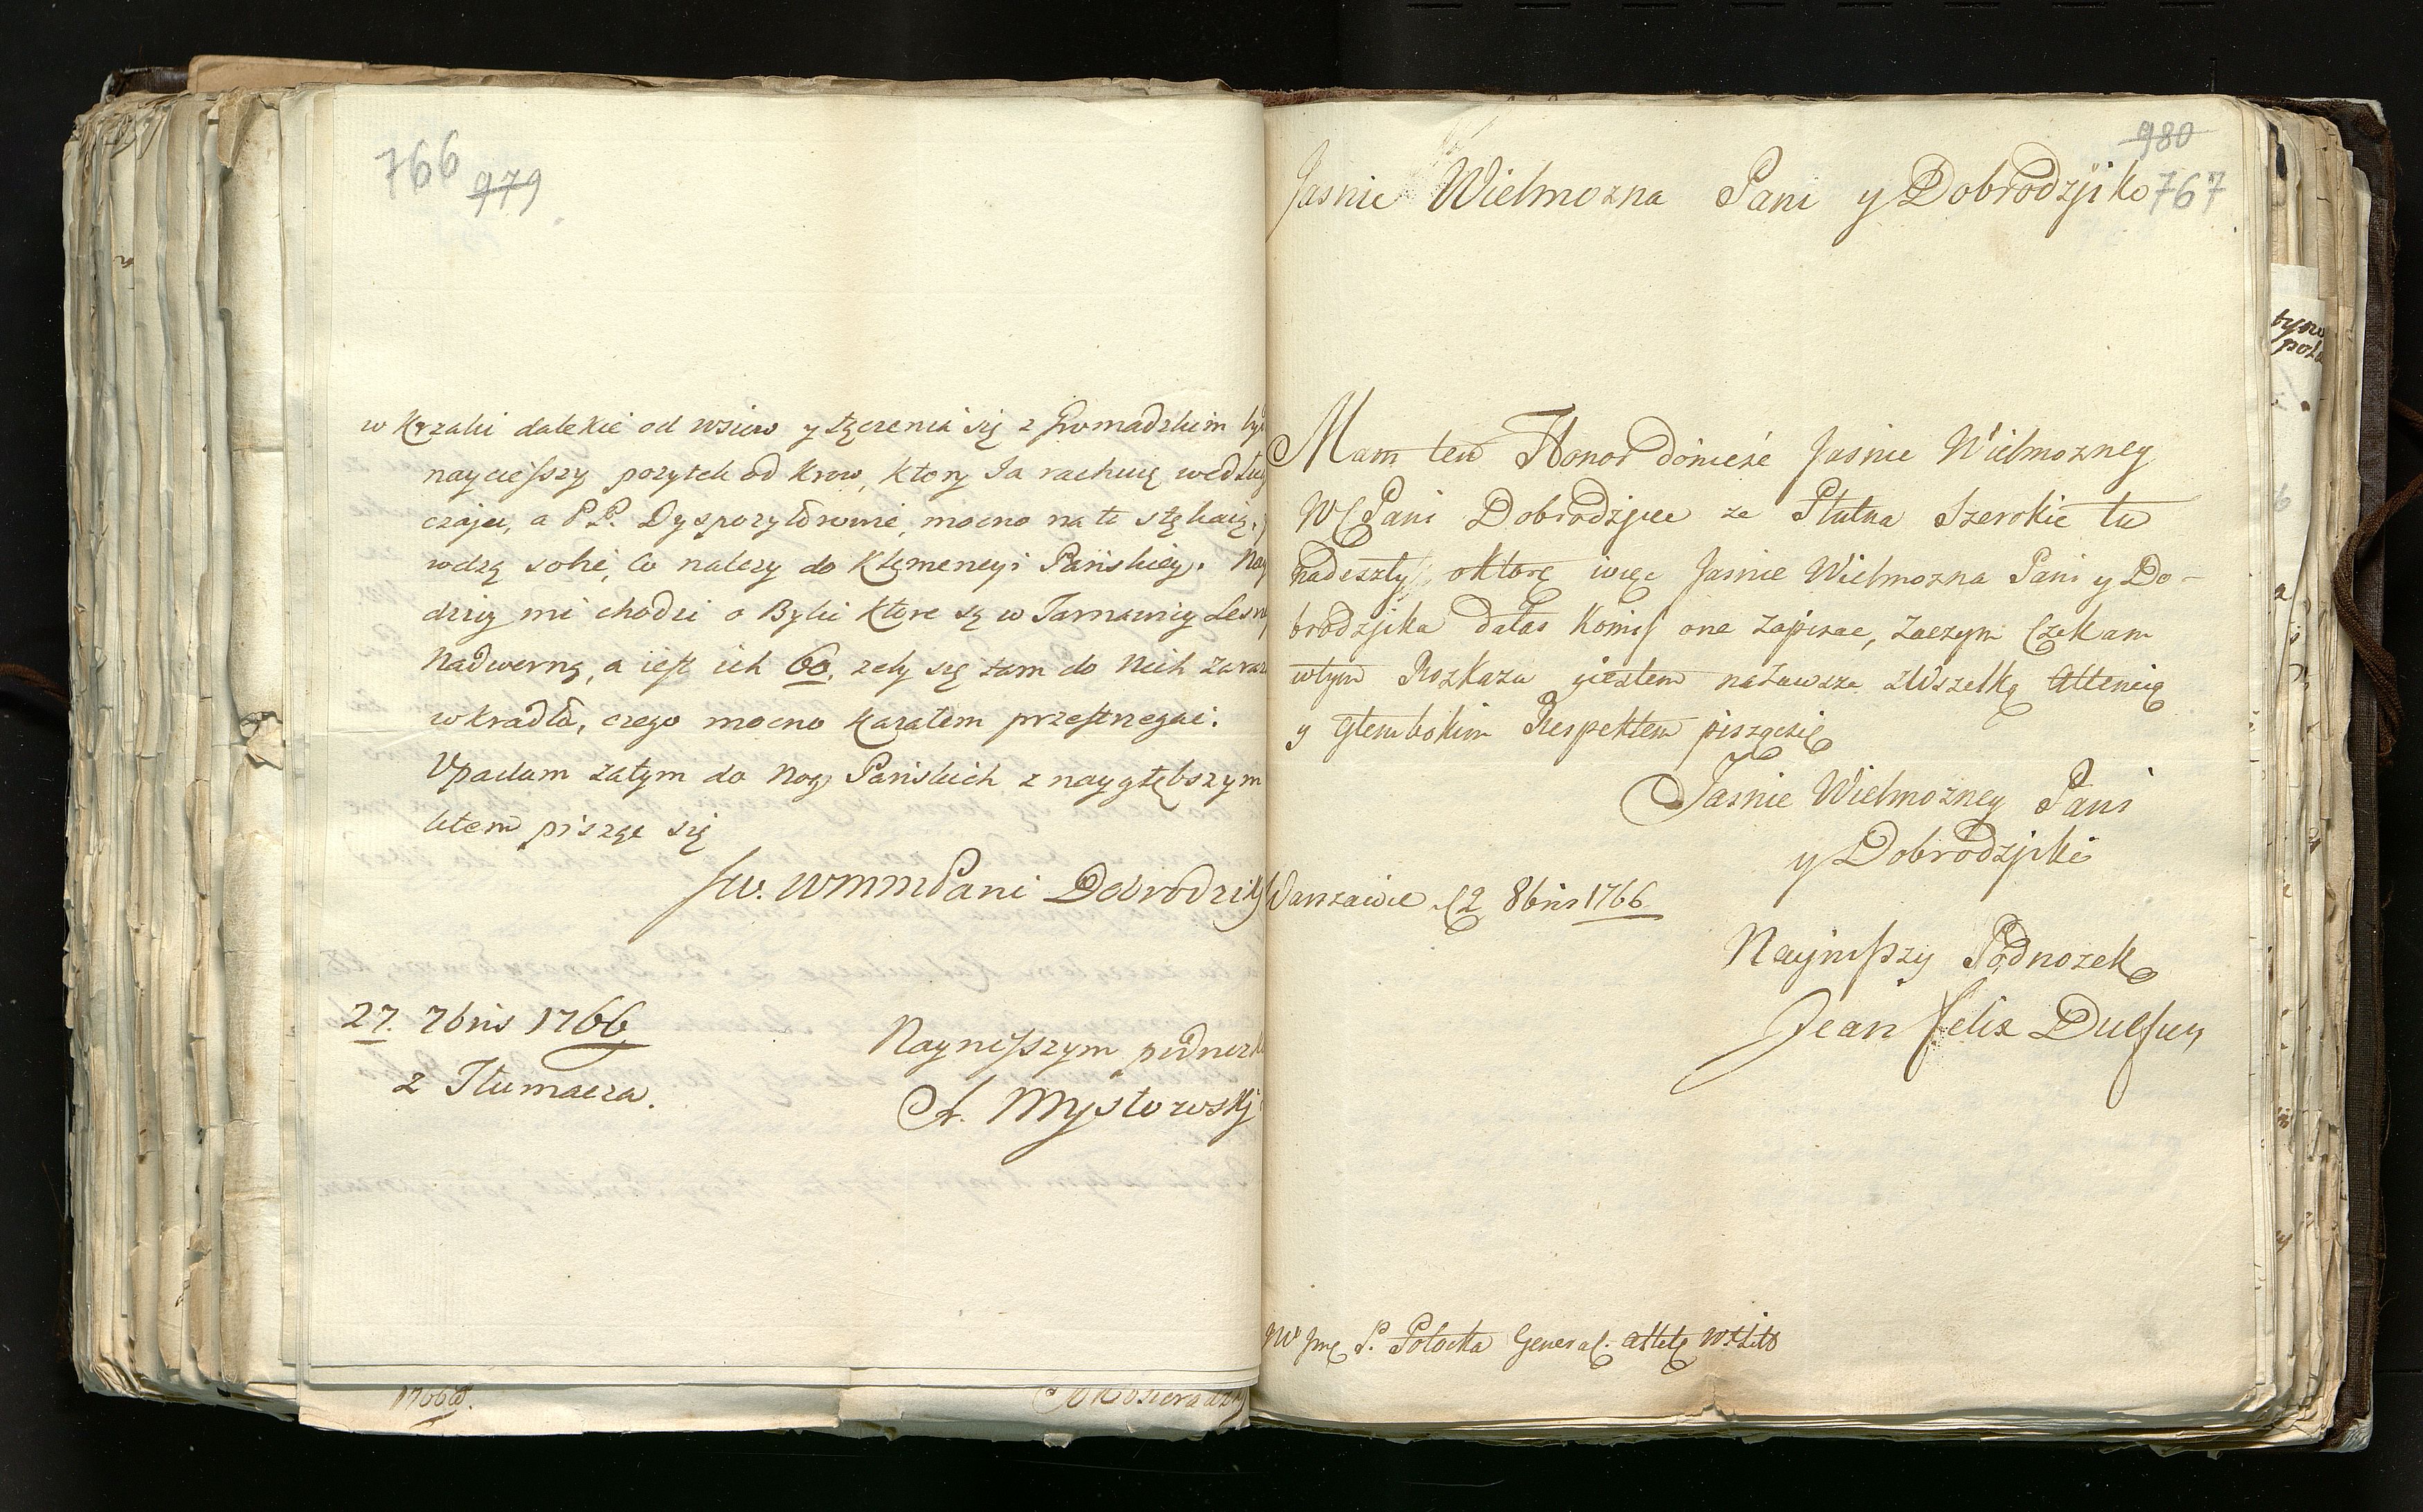 766
979
w Krzaki dalekie od wsiow y tęczenia się z Gromadzkim
naycięszy pozytek od krow, ktory Ja rachuię według
czaju, a P.P. Dyspozytorowie, mocno na to stękaią,
wdzą sobie, co nalezy do Klęmencyi Pańskiey. Nay
dziey mi chodzi o Byki ktore są w Tarnawicy Leśn
Nadworną, a iest ich 60. zeby się tam do Nich zaraz
wkradła, czego mocno kazałem przestrzegać.
Upadam zatym do Nog Pańskich z naygłębszym
ktem pisząc się
Jw. WMMPani Dobrodzik
27. 7bris 1766
z Tłumacza.
Nayniższym podnozk
A. Mysłowski
1766
980
Jasnie Wielmozna Pani y Dobrodzijko
767
Mam ten Honor donieść Jasnie Wielmozney
WPani Dobrodzyce ze Płutna Szerokie tu
nadeszły, oktorę więc Jasnie Wielmozna Pani y Do-
brodzijka dałas Komis one zapisac, Zaczym Czekam
wtym Rozkazu giestem naZawsze zWszelką Attencią
y głembokim Respektem piszącsię
Jasnie Wielmozney Pani
y Dobrodzijki
Warszawie d 2 8bris 1766
Nayniszy Podnozek
Jean Felix Dulfus
P. Potocka General. attelę